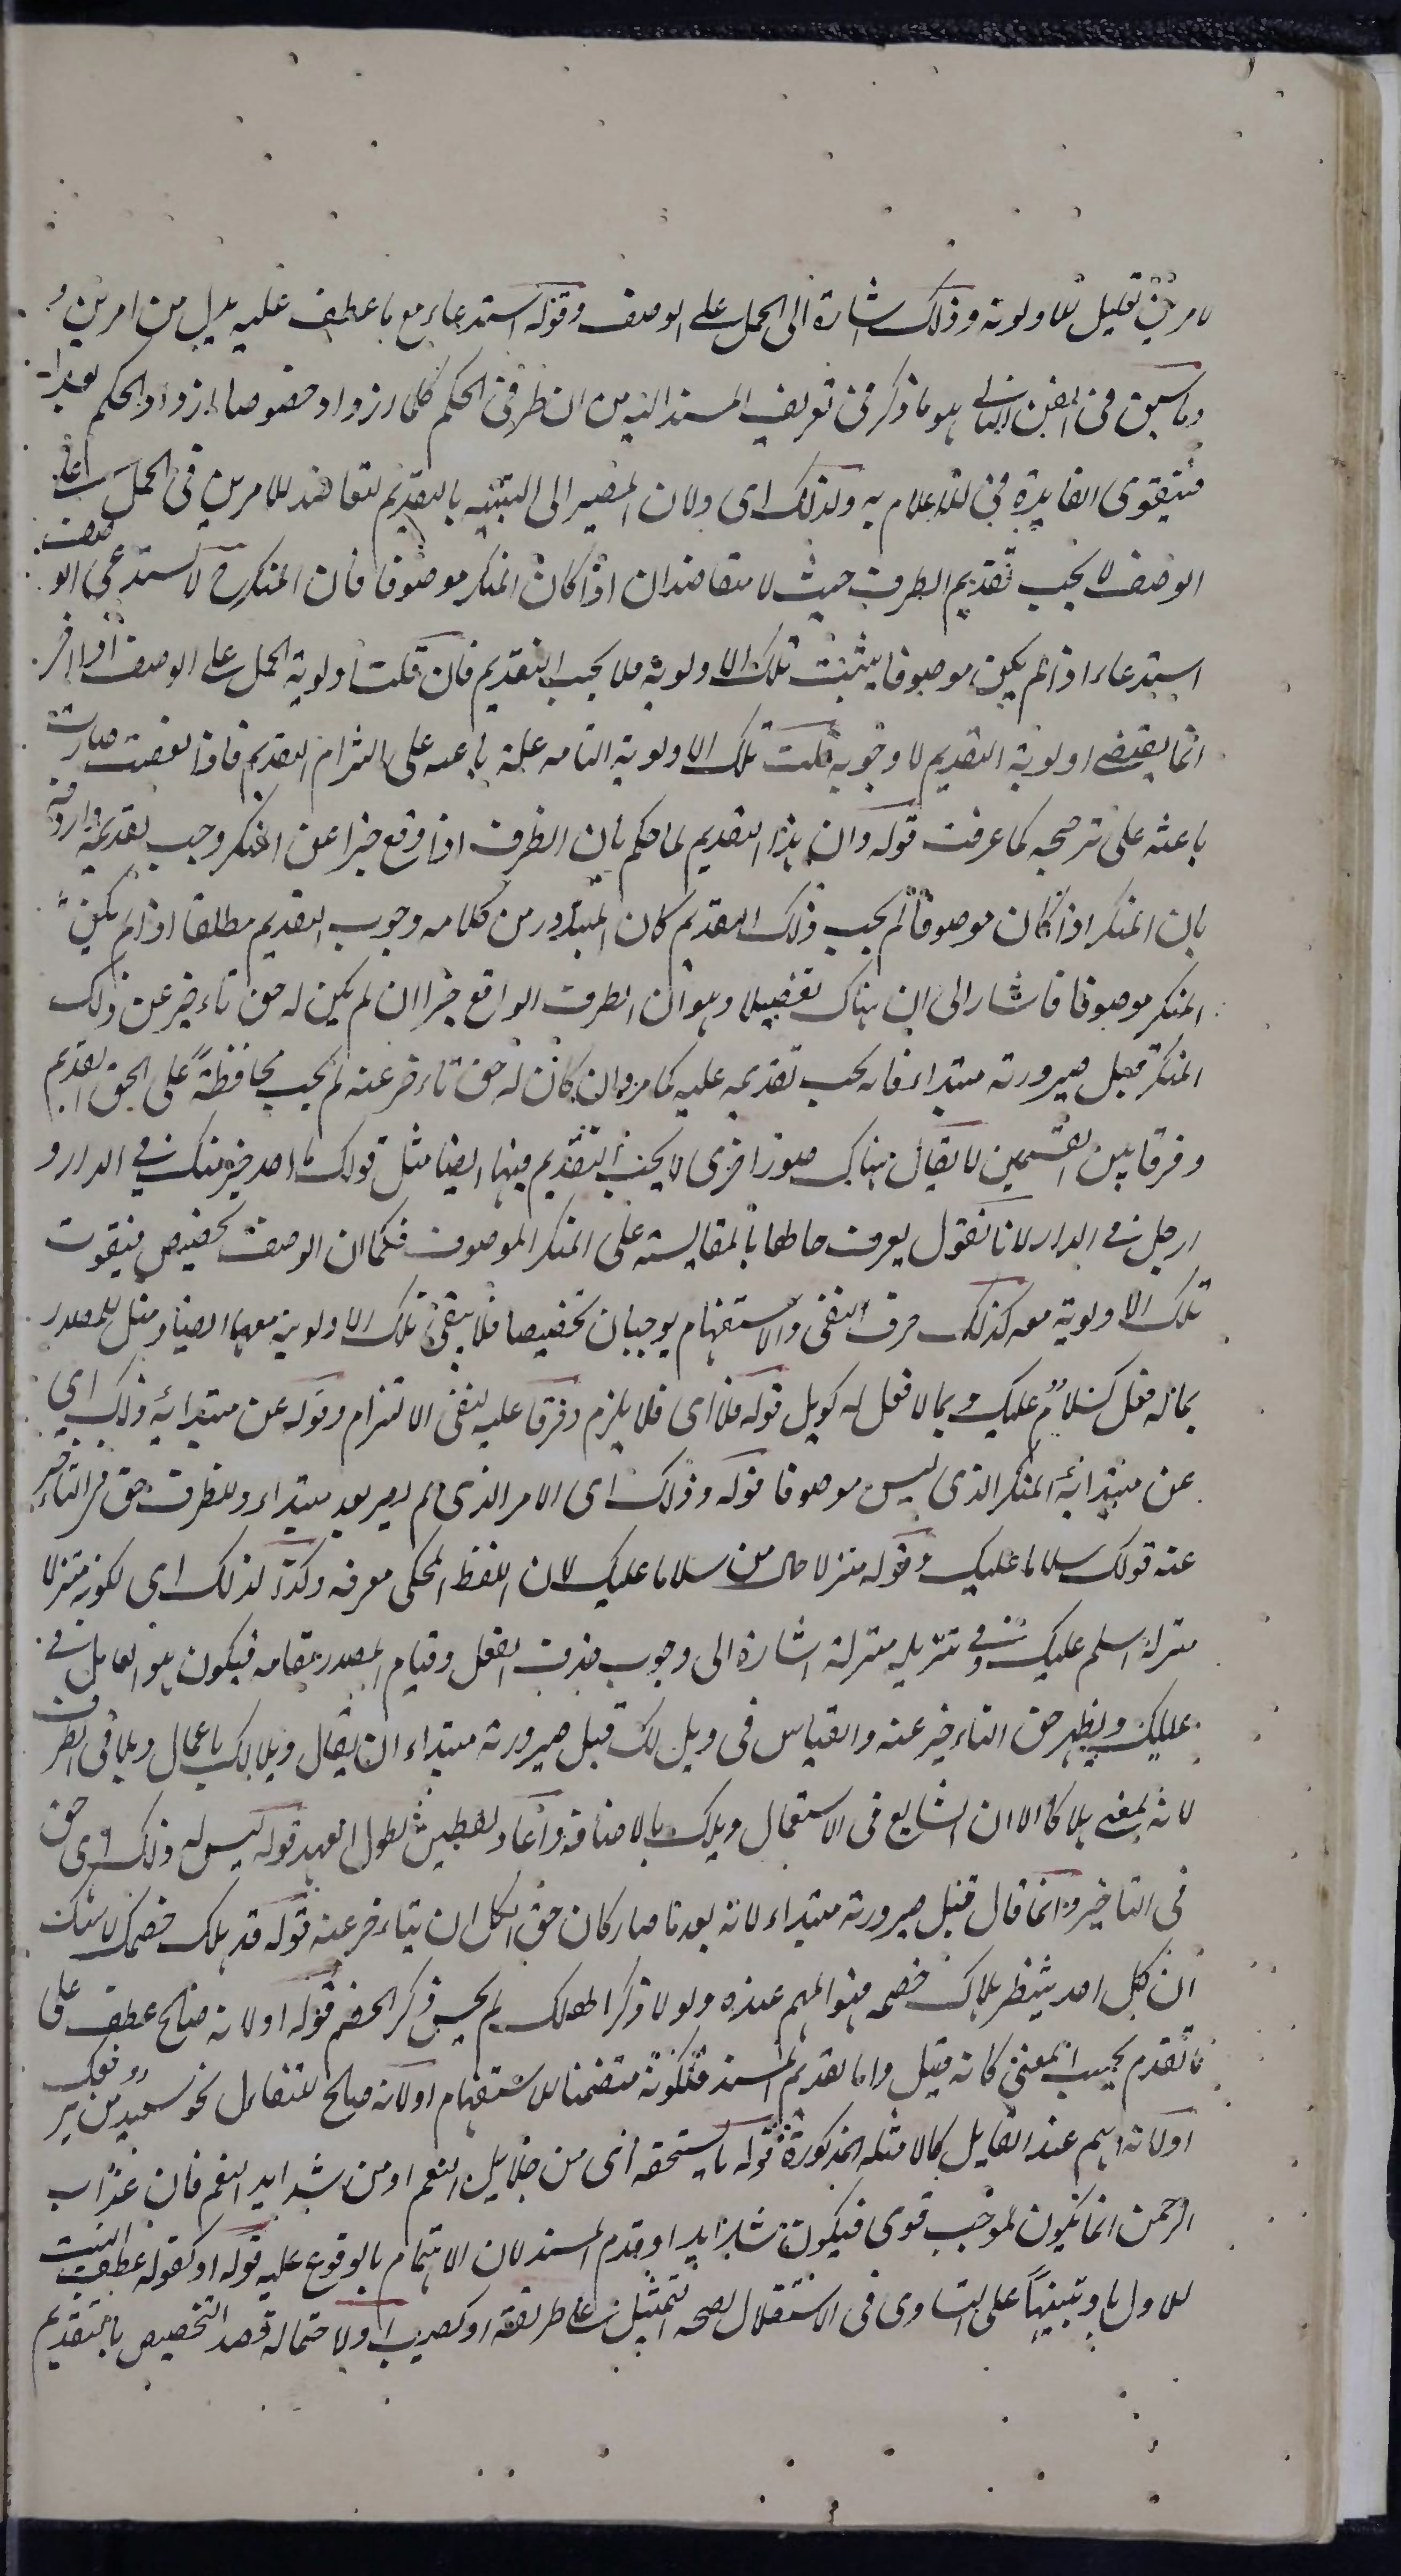 لامرين تعليل للاولوية وذلك اشارة الى الحمل على الوصف وقوله استدعاء مع ما عطف عليه بدل من امرين و
وما سبق فى الفن الثانى هو ما ذكر فى تعريف المسند اليه من ان ظرفى الحكم كلما ازداد خصوصا ازداد الحكم بعدا
فيتقوى الفايدة فى الاعلام به ولذلك اى ولان المصير الى التنبيه بالتقديم لتعاضد للامرين فى الحمل على
الوصف لا يجب تقديم الظرف حيث لا يتعاضدان اذا كان المنكر موصوفا فان المنكر ح لا يستدعى الوصف
استدعاء اذا لم يكن موصوفا يثبت تلك الاولوية فلا يجب التقديم فان قلت اولوية الحمل على الوصف
انما يقتضى اولوية التقديم لا وجوبه قلت تلك الاولوية التامه علة باعثه على التزام التقديم فاذا نقصت صارت
باعثه على ترجيحه كما عرفت قوله وان هذا التقديم لما حكم بان الظرف اذا وقع خبرا عن المنكر وجب تقديمه واردفه
بان المنكر اذا كان موصوفا لم يجب ذلك التقديم كان المتبادر من كلامه وجوب التقديم مطلقا اذا لم يكن
المنكر موصوفا فاشار الى ان هناك تفصيلا وهو ان الظرف الواقع خبرا ان لم يكن له حق تاءخير عن ذلك
المنكر قبل صيرورته مبتداء فانه يجب تقديمه عليه كما مر وان كان له حق تاءخر عنه لم يجب محافظة على الحق القديم
وفرقا بين القسمين لا يقال هناك صور اخرى لا يجب التقديم فيها ايضا مثل قولك ما احد خير منك فى الدار و
ارجل فى الدار لانا نقول يعرف حالها بالمقايسة على المنكر الموصوف فكما ان الوصف تخصيص فيفوت
تلك الاولوية معه كذلك حرف النفى والاستفهام يوجبان تخصيصا فلا يبقى تلك الاولوية معهما ايضا ومثل للمصدر
بماله فعل كسلام عليك وبما لا فعل له كويل قوله فلا اى فلا يلزم وفرقا عليه لنفى الالتزام وقوله عن مبتدائية ذلك اى
عن مبتدائية المنكر الذى ليس موصوفا قوله وذلك اى الامر الذى لم يصر بعد مبتداء وللظرف حق فى التاءخير
عنه قولك سلاما عليك وقوله منزلا حال من سلاما عليك لان اللفظ المحكى معرفه وكذا لذلك اى لكونه منزلا
منزلة اسلم عليك وفى تنزيله منزلة اشارة الى وجوب حذف الفعل وقيام المصدر مقامه فيكون هو العامل فى
عليك ويظهر حق التاءخير عنه والقياس فى ويل لك قبل صيرورته مبتداء ان يقال ويلا لك باعمال ويلا فى الظرف
لانه بمعنى هلاكا الا ان الشايع فى الاستعمال ويلك بالاضافة واعاد لفظ ليس لطول العهد قوله ليس له ذلك اى حق
فى التاخير وانما قال قبل صيرورته مبتداء لانه بعد ما صار كان حق الكل ان يتاءخر عنه قوله قد هلك خصمك لا شك
ان كل احد ينتظر هلاك خصمه فهو المهم عنده ولولا ذكر الهلاك لم يحسن ذكر الخصم قوله او لانه صالح عطف على
ما تقدم بحسب المعنى كانه قيل واما تقديم المسند فلكونه متضمنا للاستفهام او لانه صالح للتفاءل نحو سعيد من يرزقك
او لانه اهم عند القايل كالامثلة المذكورة قوله ما يستحقه اى من جلايل النعم او من شدايد النقم فان عذاب
الرحمن انما يكون لموجب قوى فيكون شدايد او قدم المسند لان الاهتمام بالوقوع عليه قوله او كقوله عطف البيت
للاول باو تنبيها على التساوى فى الاستقلال لصحه التمثيل على طريقة او كصيب ولاحتماله قصد التخصيص بالتقديم